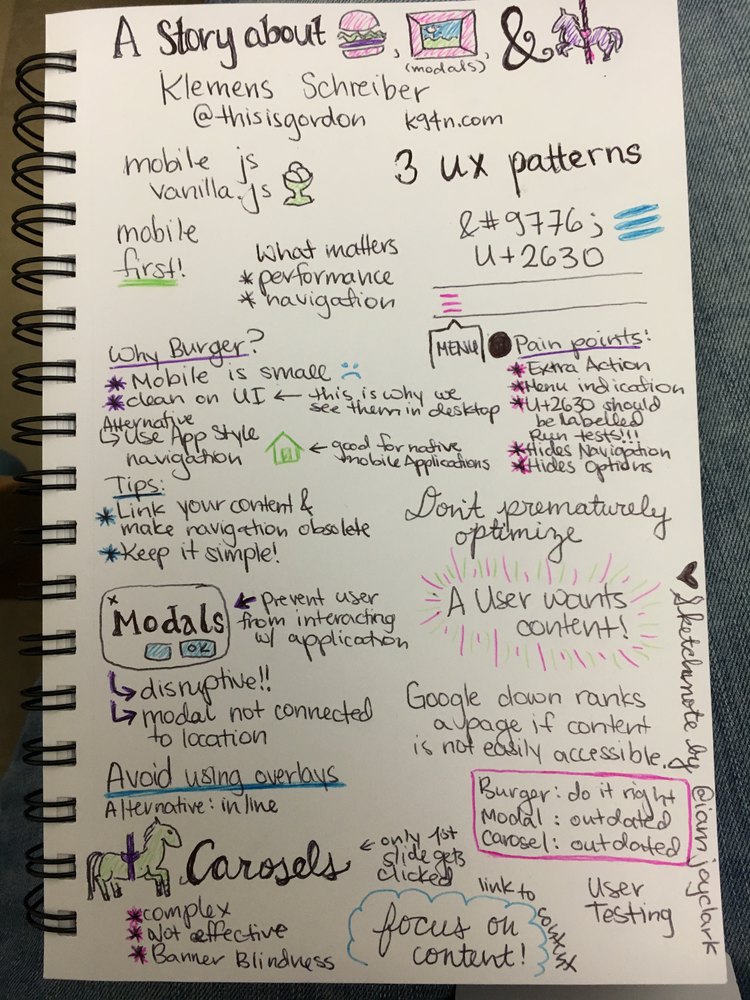 A Story about , , &
(modals)
Klemens Schreiber
@thisisgordon k94n.com
mobile js
vanilla.js
3 ux patterns
mobile
first!
What matters
* performance
* navigation
&#9776;
U+2630
MENU
Why Burger?
* Mobile is small
* clean on UI ← this is why we
see them in desktop
Alternative
↳ Use App Style
navigation
← good for native
mobile Applications
Pain points:
* Extra Action
* Menu indication
* U+2630 should
be labelled
Run tests!!!
* Hides Navigation
* Hides Options
Tips:
* Link your content &
make navigation obsolete
* Keep it simple!
Don't prematurely
optimize
A User wants
content!
x
Modals
OK
prevent user
from interacting
w/ application
↳ disruptive!!
↳ modal not connected
to location
Google down ranks
a page if content
is not easily accessible.
Avoid using overlays
Alternative: inline
Burger: do it right
Modal: outdated
Carosel: outdated
Carosels
← only 1st
slide gets
clicked
* complex
* Not effective
* Banner Blindness
focus on
content!
link to
User
Testing
♥ Sketchnote by @iamjayclark